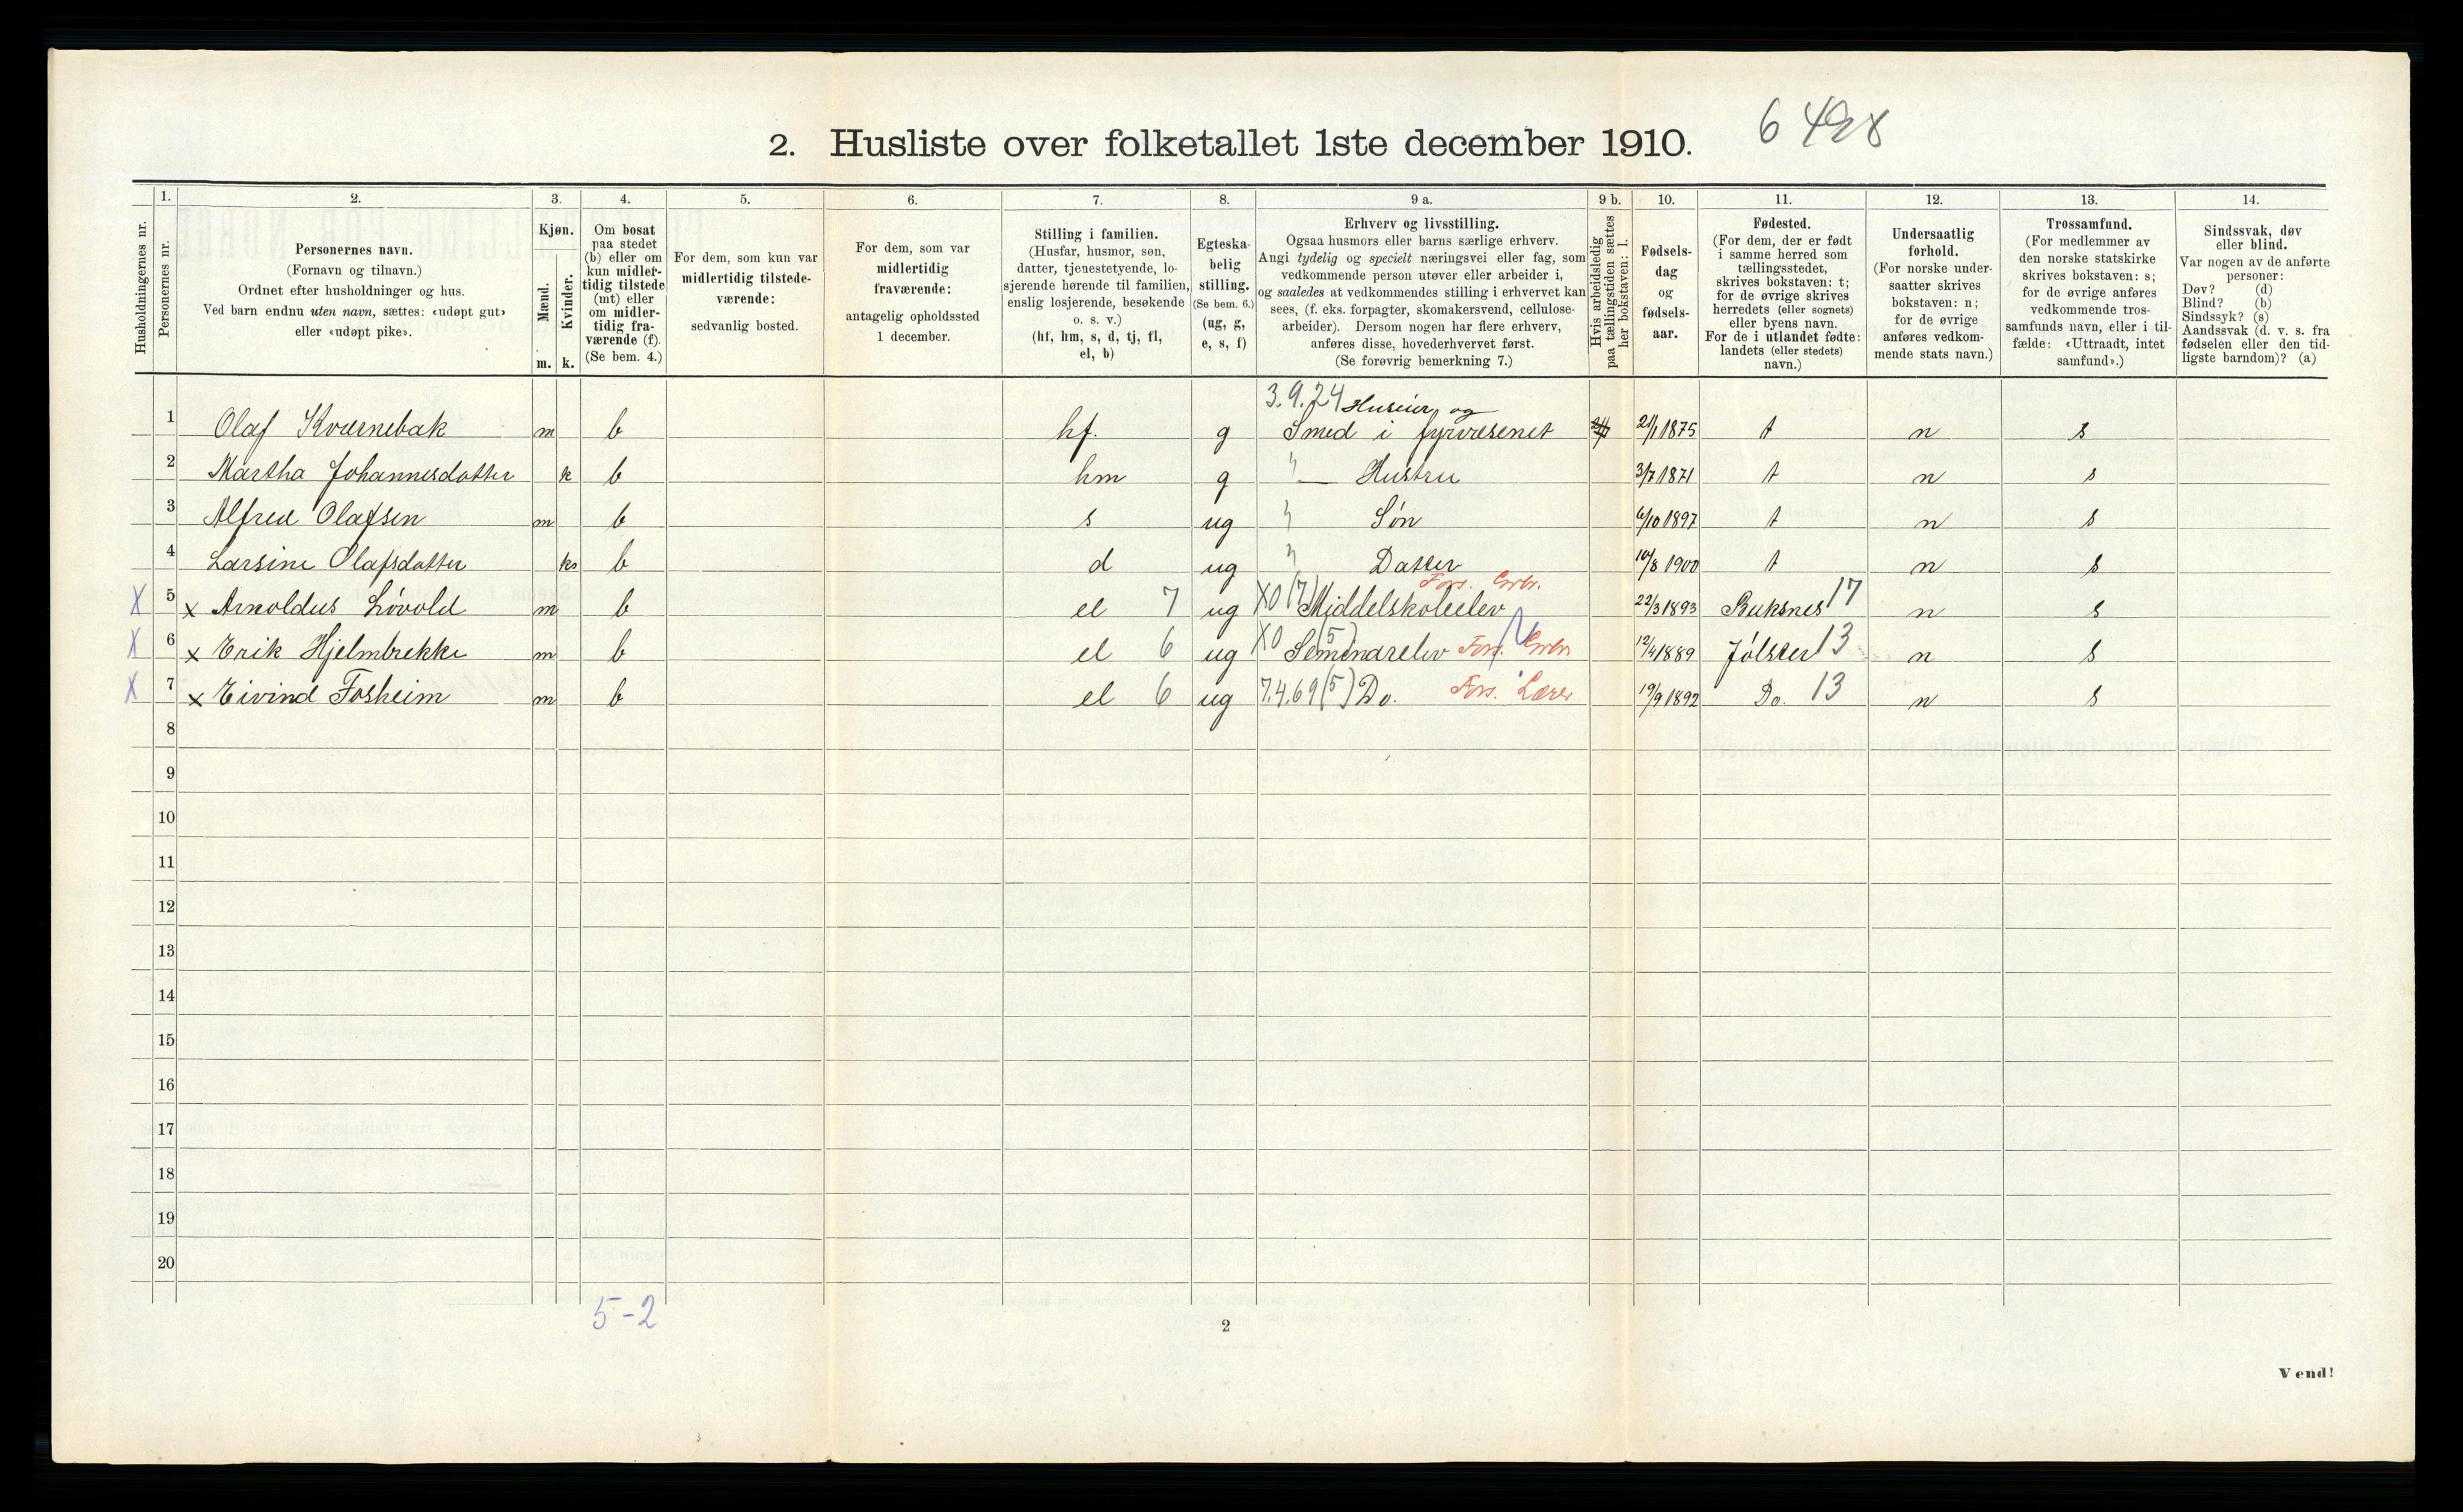 2. Husliste over folketallet 1ste december 1910.
6498
Husholdningernes nr.
1. Personernes nr.
2. Personernes navn. (Fornavn og tilnavn.) Ordnet efter husholdninger og hus. Ved barn endnu uten navn, sættes: «udøpt gut» eller «udøpt pike».
3. Kjøn. Mænd. m. Kvinder. k.
4. Om bosat paa stedet (b) eller om kun midlertidig tilstede (mt) eller om midlertidig fraværende (f). (Se bem. 4.)
5. For dem, som kun var midlertidig tilstedeværende: sedvanlig bosted.
6. For dem, som var midlertidig fraværende: antagelig opholdssted 1 december.
7. Stilling i familien. (Husfar, husmor, søn, datter, tjenestetyende, losjerende hørende til familien, enslig losjerende, besøkende o. s. v.) (hf, hm, s, d, tj, fl, el, b)
8. Egteskabelig stilling. (Se bem. 6.) (ug, g, e, s, f)
9 a. Erhverv og livsstilling. Ogsaa husmors eller barns særlige erhverv. Angi tydelig og specielt næringsvei eller fag, som vedkommende person utøver eller arbeider i, og saaledes at vedkommendes stilling i erhvervet kan sees, (f. eks. forpagter, skomakersvend, cellulosearbeider). Dersom nogen har flere erhverv, anføres disse, hovederhvervet først. (Se forøvrig bemerkning 7.)
9 b. Hvis arbeidsledig paa tællingstiden sættes her bokstaven: l.
10. Fødselsdag og fødselsaar.
11. Fødested. (For dem, der er født i samme herred som tællingsstedet, skrives bokstaven: t; for de øvrige skrives herredets (eller sognets) eller byens navn. For de i utlandet fødte: landets (eller stedets) navn.)
12. Undersaatlig forhold. (For norske undersaatter skrives bokstaven: n; for de øvrige anføres vedkommende stats navn.)
13. Trossamfund. (For medlemmer av den norske statskirke skrives bokstaven: s; for de øvrige anføres vedkommende trossamfunds navn, eller i tilfælde: «Uttraadt, intet samfund».)
14. Sindssvak, døv eller blind. Var nogen av de anførte personer: Døv? (d) Blind? (b) Sindssyk? (s) Aandssvak (d. v. s. fra fødselen eller den tidligste barndom)? (a)
3.9.24 Huseier og
1 Olaf Kværnebak m b hf. g Smed i fyrvæsenet 21/1 1875 t n s
2 Martha Johannesdatter k b hm g " — Hustru 3/7 1871 t n s
3 Alfred Olafsen m b s ug " Søn 6/10 1897 t n s
4 Larsine Olafsdatter k b d ug " Datter 10/8 1900 t n s
Fors.
X 5 x Arnoldus Lövold m b el 7 ug X0 (7) Middelskoleelev 22/3 1893 Buksnes 17 n s
X 6 x Erik Hjelmbrekke m b el 6 ug X0 (5) Seminarelev Fors. 12/4 1889 Jølster 13 n s
X 7 x Eivind Fosheim m b el 6 ug 7.4.69 (5) Do. Fors. Lærer 19/9 1892 Do. 13 n s
8
9
10
11
12
13
14
15
16
17
18
19
20
5-2
2
Vend!